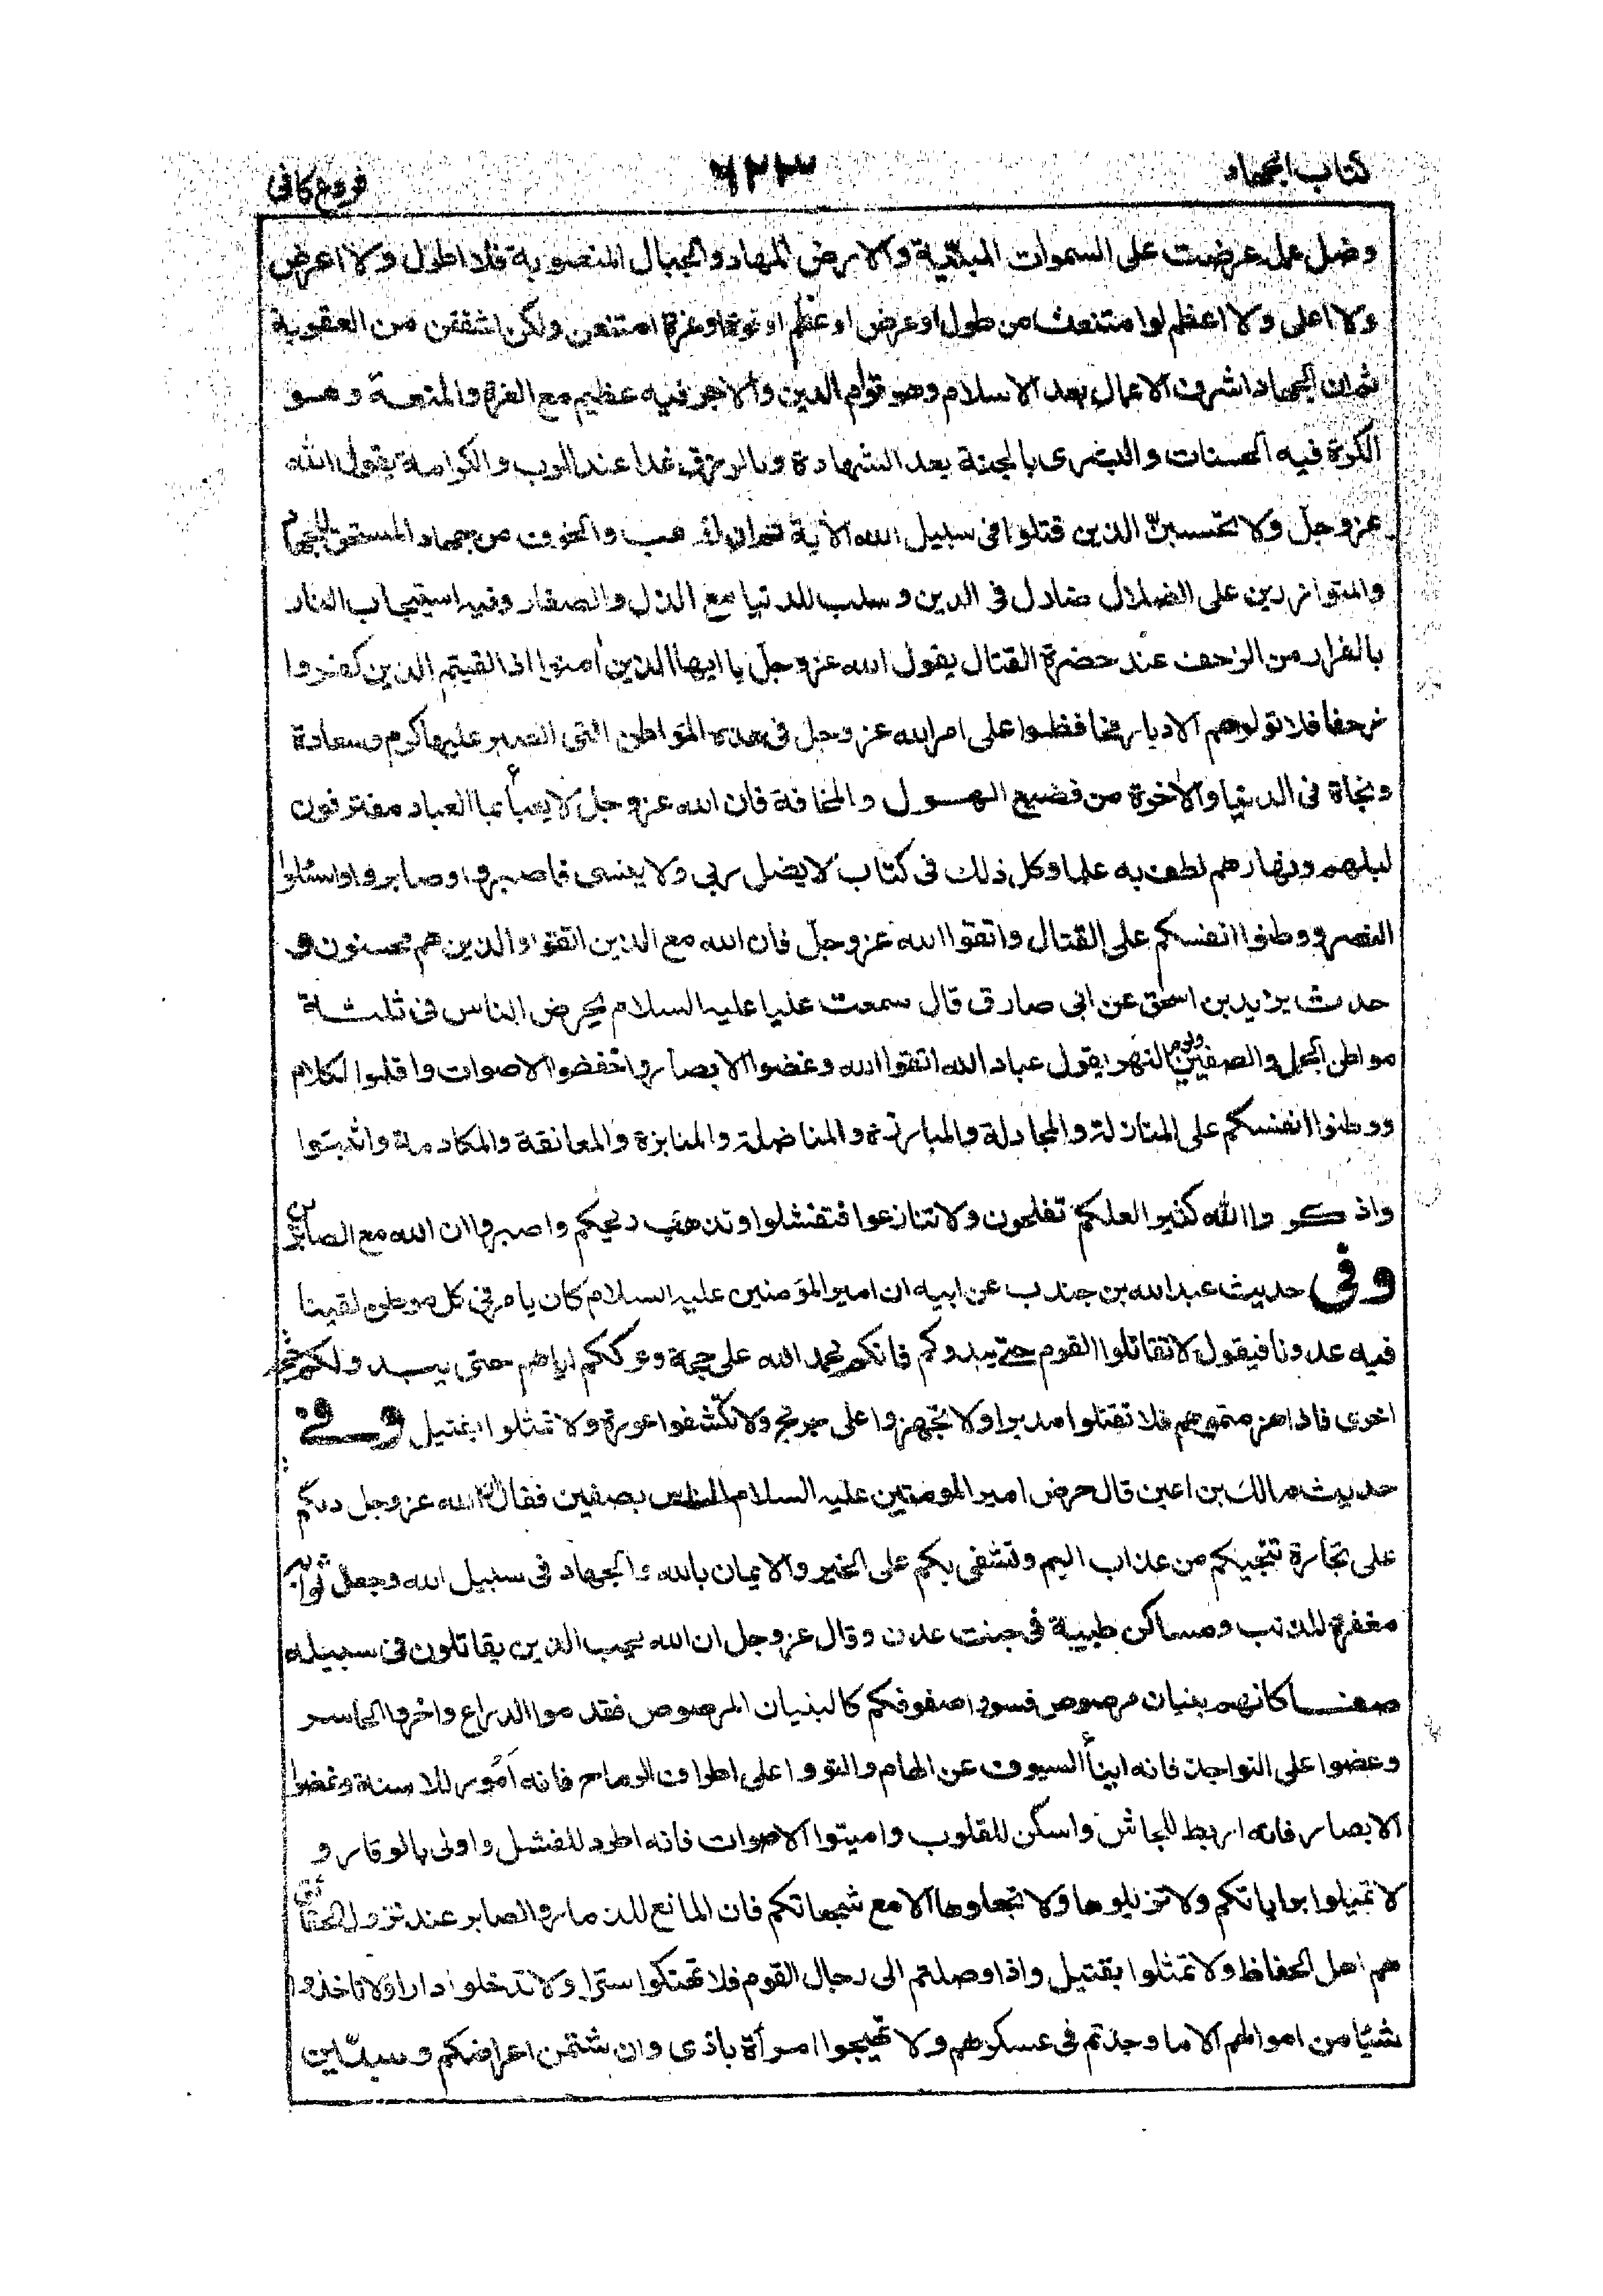 كتاب الجهاد ٦٢٣ فروع كافى
وضل عمل عرضت على السموات المبنية والارض المهاد والجبال المنصوبة فلا اطول ولا اعرض
ولا اعلى ولا اعظم لو امتنعت من طول او عرض او عظم او قوة او عزة امتنعن ولكن اشفقن من العقوبة
ثم ان الجهاد اشرف الاعمال بعد الاسلام وهو قوام الدين والاجر فيه عظيم مع العزة والمنعة وهو
الكرة فيه الحسنات والبشرى بالجنة بعد الشهادة وبالرزق غدا عند الرب والكرامة يقول الله
عز وجل ولا تحسبن الذين قتلوا فى سبيل الله الاية ثم ان الرعب والخوف من جهاد المستحق للجهاد
والمتوازرين على الضلال ضلال فى الدين وسلب للدنيا مع الذل والصغار وفيه استيجاب النار
بالفرار من الزحف عند حضرة القتال يقول الله عز وجل يا ايها الذين امنوا اذا لقيتم الذين كفروا
زحفا فلا تولوهم الادبار فحافظوا على امر الله عز وجل فى هذه المواطن التى الصبر عليها كرم وسعادة
ونجاة فى الدنيا والاخرة من فضيع الهول والمخافة فان الله عز وجل لا يعبأ بما العباد مقترفون
ليلهم ونهارهم لطف به علما وكل ذلك فى كتاب لا يضل ربى ولا ينسى فاصبروا وصابروا واسئلوا
النصر ووطنوا انفسكم على القتال واتقوا الله عز وجل فان الله مع الذين اتقوا والذين هم محسنون و
حديث يزيد بن اسحق عن ابى صادق قال سمعت عليا عليه السلام يحرض الناس فى ثلثة
مواطن الجمل والصفين ويوم النهر يقول عباد الله اتقوا الله وغضوا الابصار واخفضوا الاصوات واقلوا الكلام
ووطنوا انفسكم على المنازلة والمجادلة والمبارزة والمناضلة والمنابزة والمعانقة والمكادمة واثبتوا
واذكروا الله كثيرا لعلكم تفلحون ولا تنازعوا فتفشلوا وتذهب ريحكم واصبروا ان الله مع الصابرين
وفى حديث عبد الله بن جندب عن ابيه ان امير المؤمنين عليه السلام كان يامر فى كل موطن لقينا
فيه عدونا فيقول لا تقاتلوا القوم حتى يبدوكم فانكم بحمد الله على حجة وترككم اياهم حتى يبدولكم حجة
اخرى فاذا هزمتموهم فلا تقتلوا مدبرا ولا تجهزوا على جريح ولا تكشفوا عورة ولا تمثلوا بقتيل وفى
حديث مالك بن اعين قال حرض امير المومنين عليه السلام الناس بصفين فقال ان الله عز وجل دلكم
على تجارة تنجيكم من عذاب اليم وتشفى بكم على الخير والايمان بالله والجهاد فى سبيل الله وجعل ثوابه
مغفرة للذنب ومساكن طيبة فى جنت عدن وقال عز وجل ان الله يحب الذين يقاتلون فى سبيله
صفا كانهم بنيان مرصوص فسووا صفوفكم كالبنيان المرصوص فقدموا الدراع واخروا الحاسر
وعضوا على النواجذ فانه انبأ السيوف عن الهام والتووا على اطراف الرماح فانه امور للاسنة وغضوا
الابصار فانه اربط للجاش واسكن للقلوب واميتوا الاصوات فانه اطرد للفشل واولى بالوقار و
لا تميلوا براياتكم ولا تزيلوها ولا تجعلوها الا مع شجعانكم فان المانع للذمار والصابر عند نزول الحقائق
هم اهل الحفاظ ولا تمثلوا بقتيل واذا وصلتم الى رحال القوم فلا تهتكوا سترا ولا تدخلوا دارا ولا تاخذوا
شيئا من اموالهم الا ما وجدتم فى عسكرهم ولا تهيجوا امرأة باذى وان شتمن اعراضكم وسببن